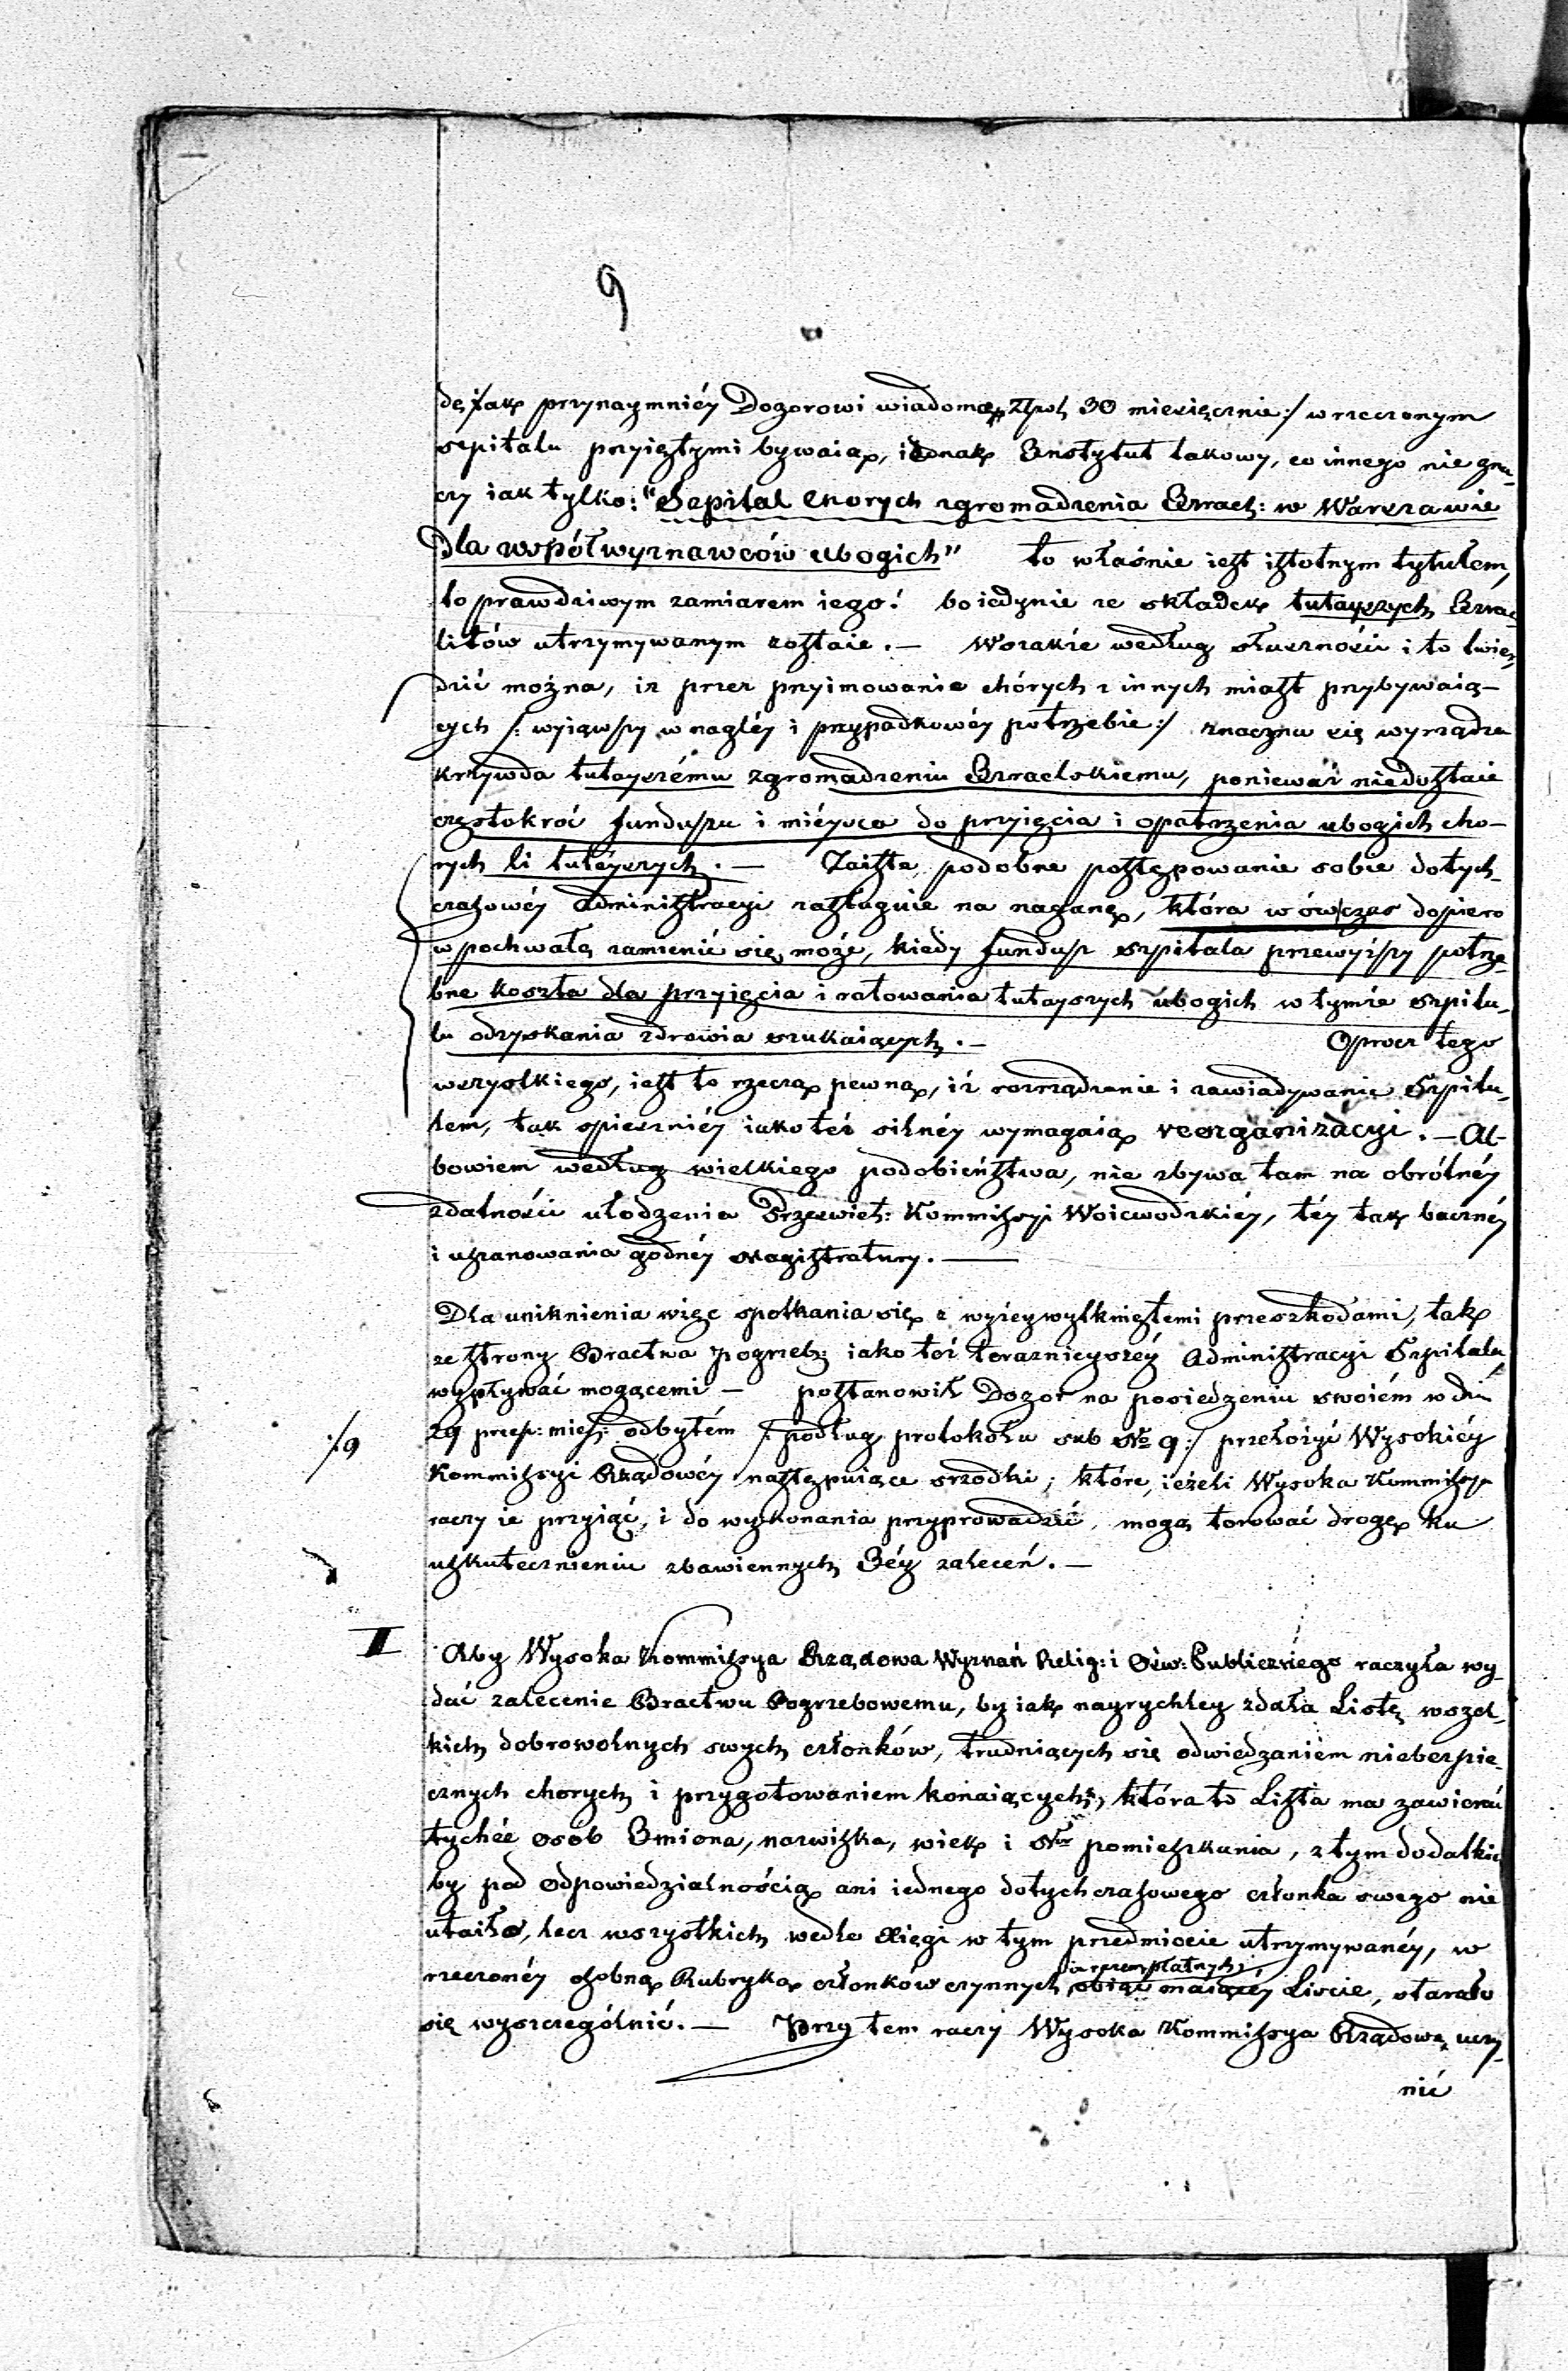 9
dę /: jak przynaymniéy Dozorowi wiadomo, Złpol 30 miesięcznie :/ w rzeczonym
szpitalu przyiętymi bywaią, iednak Instytut takowy, co innego nie zna-
czy iak tylko: "Szpital Chorych zgromadzenia Izrael: w Warszawie
dla współwyznawców ubogich" to właśnie iest istotnym tytułem,
to prawdziwym zamiarem iego! bo iedynie ze składek tutayszych Izrae-
litów utrzymywanym zostaie. — Wszakże według słuszności i to twier-
dzić można, iż przez przyimowanie chórych z innych miast przybywaią-
cych /: wyiąwszy w nagléy i przypadkowéy potrzebie :/ znaczna się wyrządza
krzywda tutayszému zgromadzeniu Izraelskiemu, ponieważ niedostaie
częstokroć funduszu i miéysca do przyięcia i opatrzenia ubogich cho-
rych li tutéyszych. — Zaiste podobne postępowanie sobie dotych-
czasowéy Administracyi zasługuie na naganę, która wówczas dopiero
w pochwałę zamienić się może, kiedy fundusz szpitala przewyższy potrze-
bne koszta dla przyięcia i ratowania tutayszych ubogich w tymże szpita-
lu odzyskania zdrowia szukaiących. — Oprocz tego
wszystkiego, iest to rzeczą pewną, iż rozrządzenie i zawiadywanie Szpita-
lem, tak spieszniéy iako też silnéy wymagaią reorganizacyi. — Al-
bowiem według wielkiego podobieństwa, nie zbywa tam na obrótnéy
zdatności ułodzenia Prześwięt: Kommissyi Woiewodzkiéy, téy tak bacznéy
i uszanowania godnéy Magistratury. —
Dla uniknienia więc spotkania się z wyżeywytknięteni przeszkodami, tak
ze strony Bractwa Pogrzeb: iako też teraznieyszéy Administracyi Szpitala,
wypływać mogącemi — postanowił Dozor na posiedzeniu swoiém w dniu
29 przesz: mies: odbytém /: podług protokołu sub No 9 :/ przełożyć Wysokiéy
:/9
Kommissyi Rządowéy następuiące srzodki; które, ieżeli Wysoka Kommissya
raczy ie przyiąć, i do wykonania przyprowadzić, mogą torować drogę ku
uskutecznieniu zbawiennych Jéy zaleceń. —
II Aby Wysoka Kommissya Rządowa Wyznań Relig: i Ośw: Publicznego raczyła wy-
dać zalecenie Bractwu Pogrzebowemu, by iak nayrychley zdała Listę wszel-
kich dobrowolnych swych członków, trudniących się odwiedzaniem niebezpie-
cznych chorych i przygotowaniem konaiących; która to Lista ma zawierać
tychże osób Imiona, nazwiska, wiek i Nr pomieszkania, z tym dodatkiem
by pod odpowiedzialnością ani iednego dotychczasowego członka swego nie
utaiło, lecz wszystkich wedle Xięgi w tym przedmiocie utrzymywanéy, w
rzeczonéy osobną Rubryką członków czynnych obiąć maiącéy Liscie, starało
się wyszczególnić. — Przy tem raczy Wysoka Kommissya Rządowa uczy-
nić